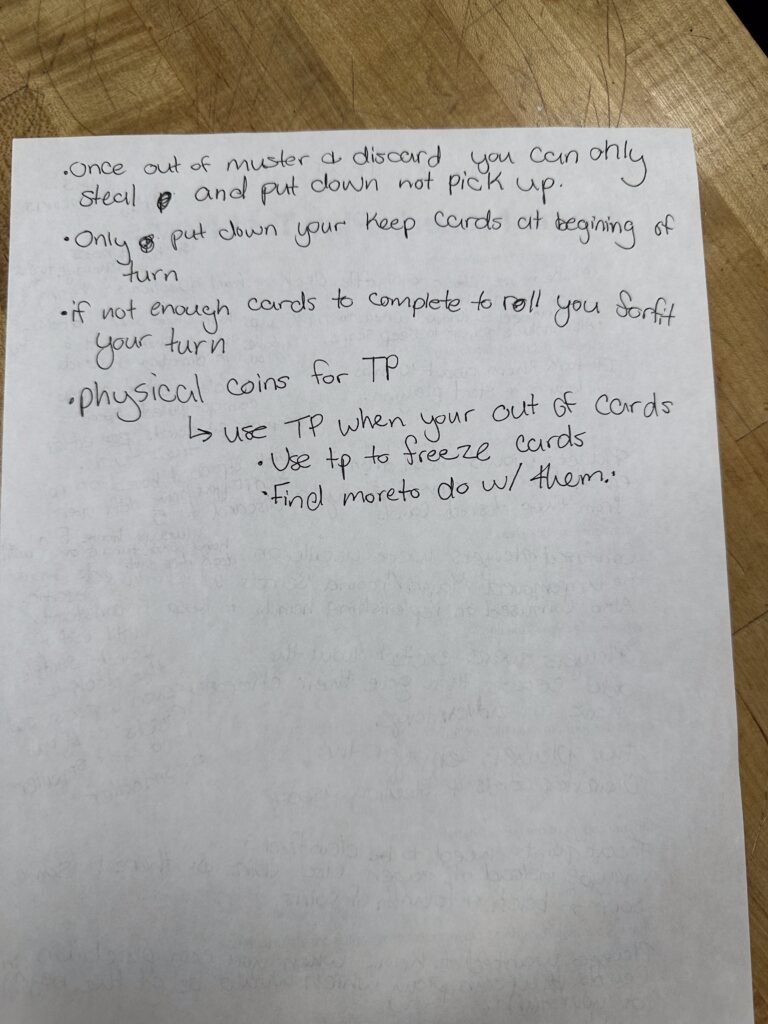 • Once out of muster d discard you can only
steal and put down not pick up.
• Only put down your keep cards at begining of
turn
• if not enough cards to complete to roll you forfit
your turn
• physical coins for TP
↳ use TP when your out of cards
• Use tp to freeze cards
• Find more to do w/ them.